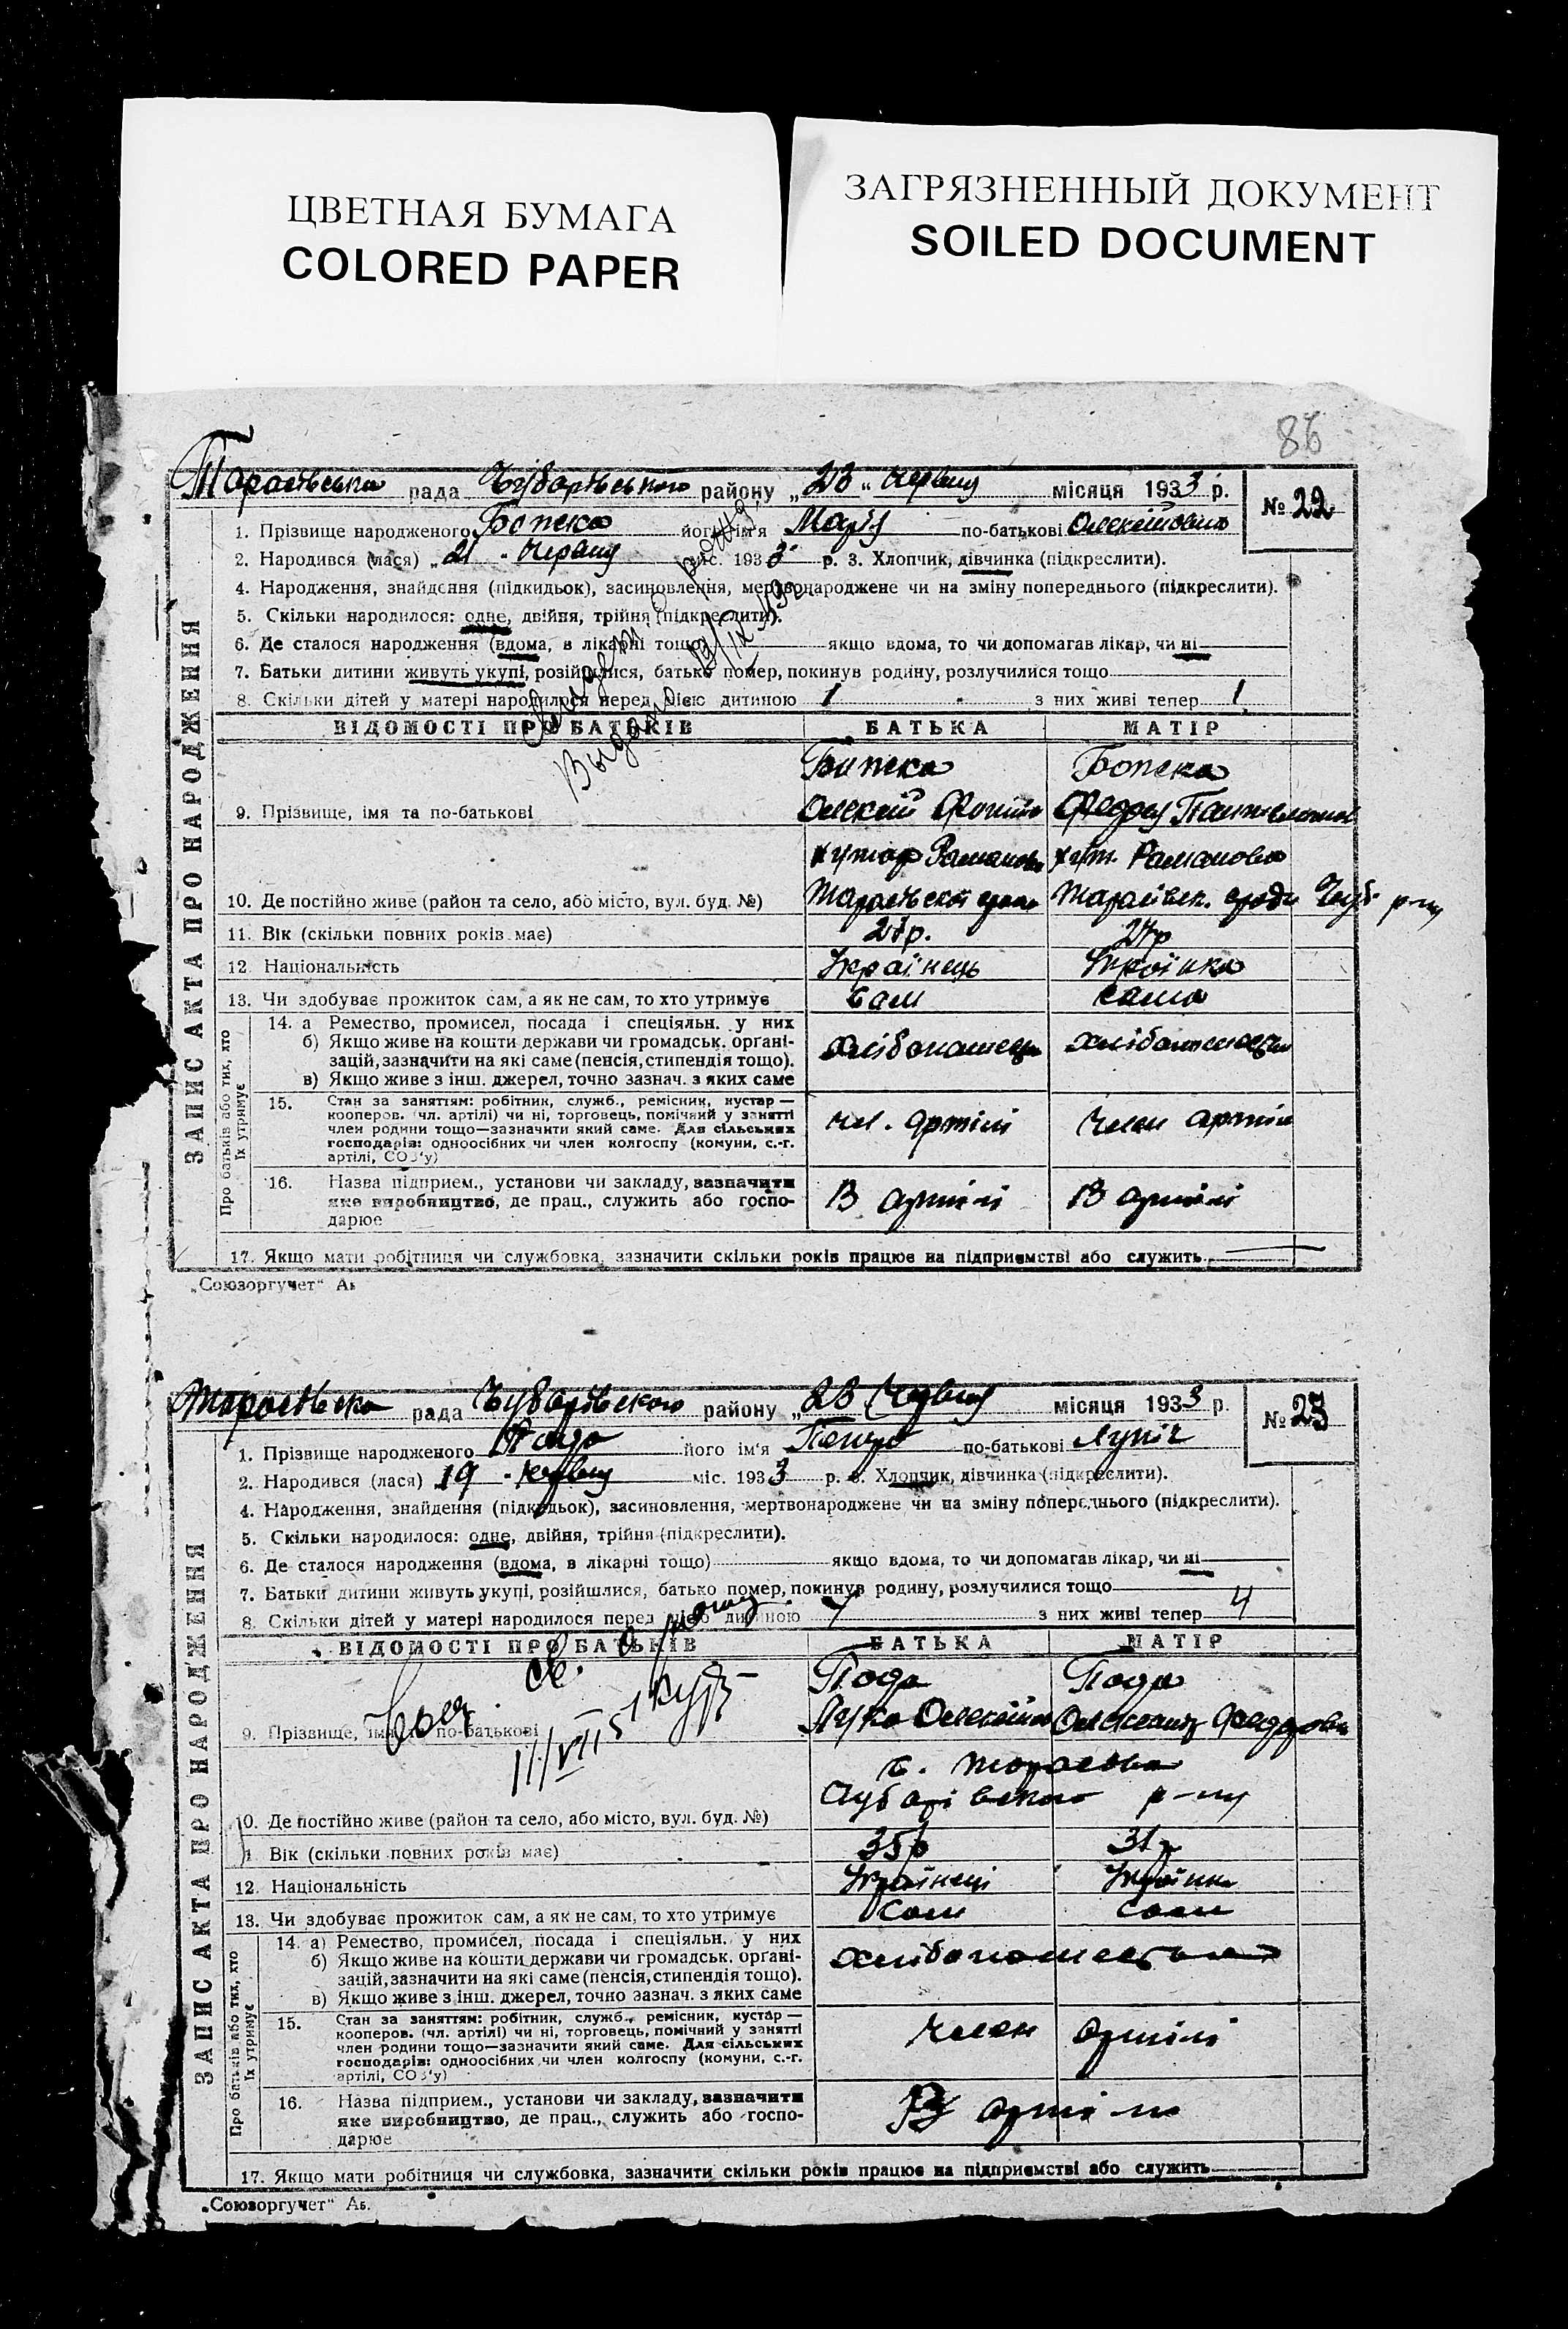 ЦВЕТНАЯ БУМАГА
COLORED PAPER
ЗАГРЯЗНЕННЫЙ ДОКУМЕНТ
SOILED DOCUMENT
86
ЗАПИС АКТА ПРО НАРОДЖЕННЯ
Тарасівська рада Чубарівського району „23“ червня місяця 1933 р. № 22
1. Прізвище народженого його ім'я Марія по-батькові Олексіївна
2. Народився (лася) „21 червня міс. 1933 р. 3. Хлопчик, дівчинка (підкреслити).
4. Народження, знайдення (підкидьок), засиновлення, мертвонароджене чи на зміну попереднього (підкреслити).
5. Скільки народилося: одне, двійня, трійня (підкреслити).
6. Де сталося народження (вдома, в лікарні тощо) якщо вдома, то чи допомагав лікар, чи ні
7. Батьки дитини живуть укупі, розійшлися, батько помер, покинув родину, розлучилися тощо
8. Скільки дітей у матері народилося перед цією дитиною 1 з них живі тепер 1
ВІДОМОСТІ ПРО БАТЬКІВ БАТЬКА МАТІР
9. Прізвище, імя та по-батькові
Олексій
хутор Романовка хут. Романовка
10. Де постійно живе (район та село, або місто, вул. буд. №) Тарасівської Тарасівськ. Чуб. р-ну
11. Вік (скільки повних років має) 27р. 27р
12. Національність Українець Українка
13. Чи здобуває прожиток сам, а як не сам, то хто утримує сам сама
Про батьків або тих, хто їх утримує
14. а Ремество, промисел, посада і спеціяльн. у них
б) Якщо живе на кошти держави чи громадськ. органі-
зацій, зазначити на які саме (пенсія, стипендія тощо).
в) Якщо живе з інш. джерел, точно зазнач. з яких саме
хлібопашець
15. Стан за заняттям: робітник, служб., ремісник, кустар —
кооперов. (чл. артілі) чи ні, торговець, помічний у занятті
член родини тощо—зазначити який саме. Для сільських
господарів: одноосібних чи член колгоспу (комуни, с.-г.
артілі, СОЗ'у)
чл. артілі член артілі
16. Назва підприєм., установи чи закладу, зазначити
яке виробництво, де прац., служить або госпо-
дарює
В артілі В артілі
17. Якщо мати робітниця чи службовка, зазначити скільки років працює на підприємстві або служить
„Союзоргучет“
ЗАПИС АКТА ПРО НАРОДЖЕННЯ
Тарасівська рада Чубарівського району „23 червня місяця 1933 р. № 23
1. Прізвище народженого Пода його ім'я Петро по-батькові Лукіч
2. Народився (лася) 19 червня міс. 1933 р. 3. Хлопчик, дівчинка (підкреслити).
4. Народження, знайдення (підкидьок), засиновлення, мертвонароджене чи на зміну попереднього (підкреслити).
5. Скільки народилося: одне, двійня, трійня (підкреслити).
6. Де сталося народження (вдома, в лікарні тощо) якщо вдома, то чи допомагав лікар, чи ні
7. Батьки дитини живуть укупі, розійшлися, батько помер, покинув родину, розлучилися тощо
8. Скільки дітей у матері народилося перед цією дитиною з них живі тепер 4
ВІДОМОСТІ ПРО БАТЬКІВ БАТЬКА МАТІР
Пода Пода
9. Прізвище, імя та по-батькові Лука Федоровна
с. Тарасовка
Чубарівського р-ну
10. Де постійно живе (район та село, або місто, вул. буд. №)
11. Вік (скільки повних років має) 35р 31р
12. Національність Українець Українка
13. Чи здобуває прожиток сам, а як не сам, то хто утримує сам сам
Про батьків або тих, хто їх утримує
14. а) Ремество, промисел, посада і спеціяльн. у них
б) Якщо живе на кошти держави чи громадськ. органі-
зацій, зазначити на які саме (пенсія, стипендія тощо).
в) Якщо живе з інш. джерел, точно зазнач. з яких саме
15. Стан за заняттям: робітник, служб., ремісник, кустар —
кооперов. (чл. артілі) чи ні, торговець, помічний у занятті
член родини тощо—зазначити який саме. Для сільських
господарів: одноосібних чи член колгоспу (комуни, с.-г.
артілі, СОЗ'у)
член артілі
16. Назва підприєм., установи чи закладу, зазначити
яке виробництво, де прац., служить або госпо-
дарює
В артілі
17. Якщо мати робітниця чи службовка, зазначити скільки років працює на підприємстві або служить
„Союзоргучет“